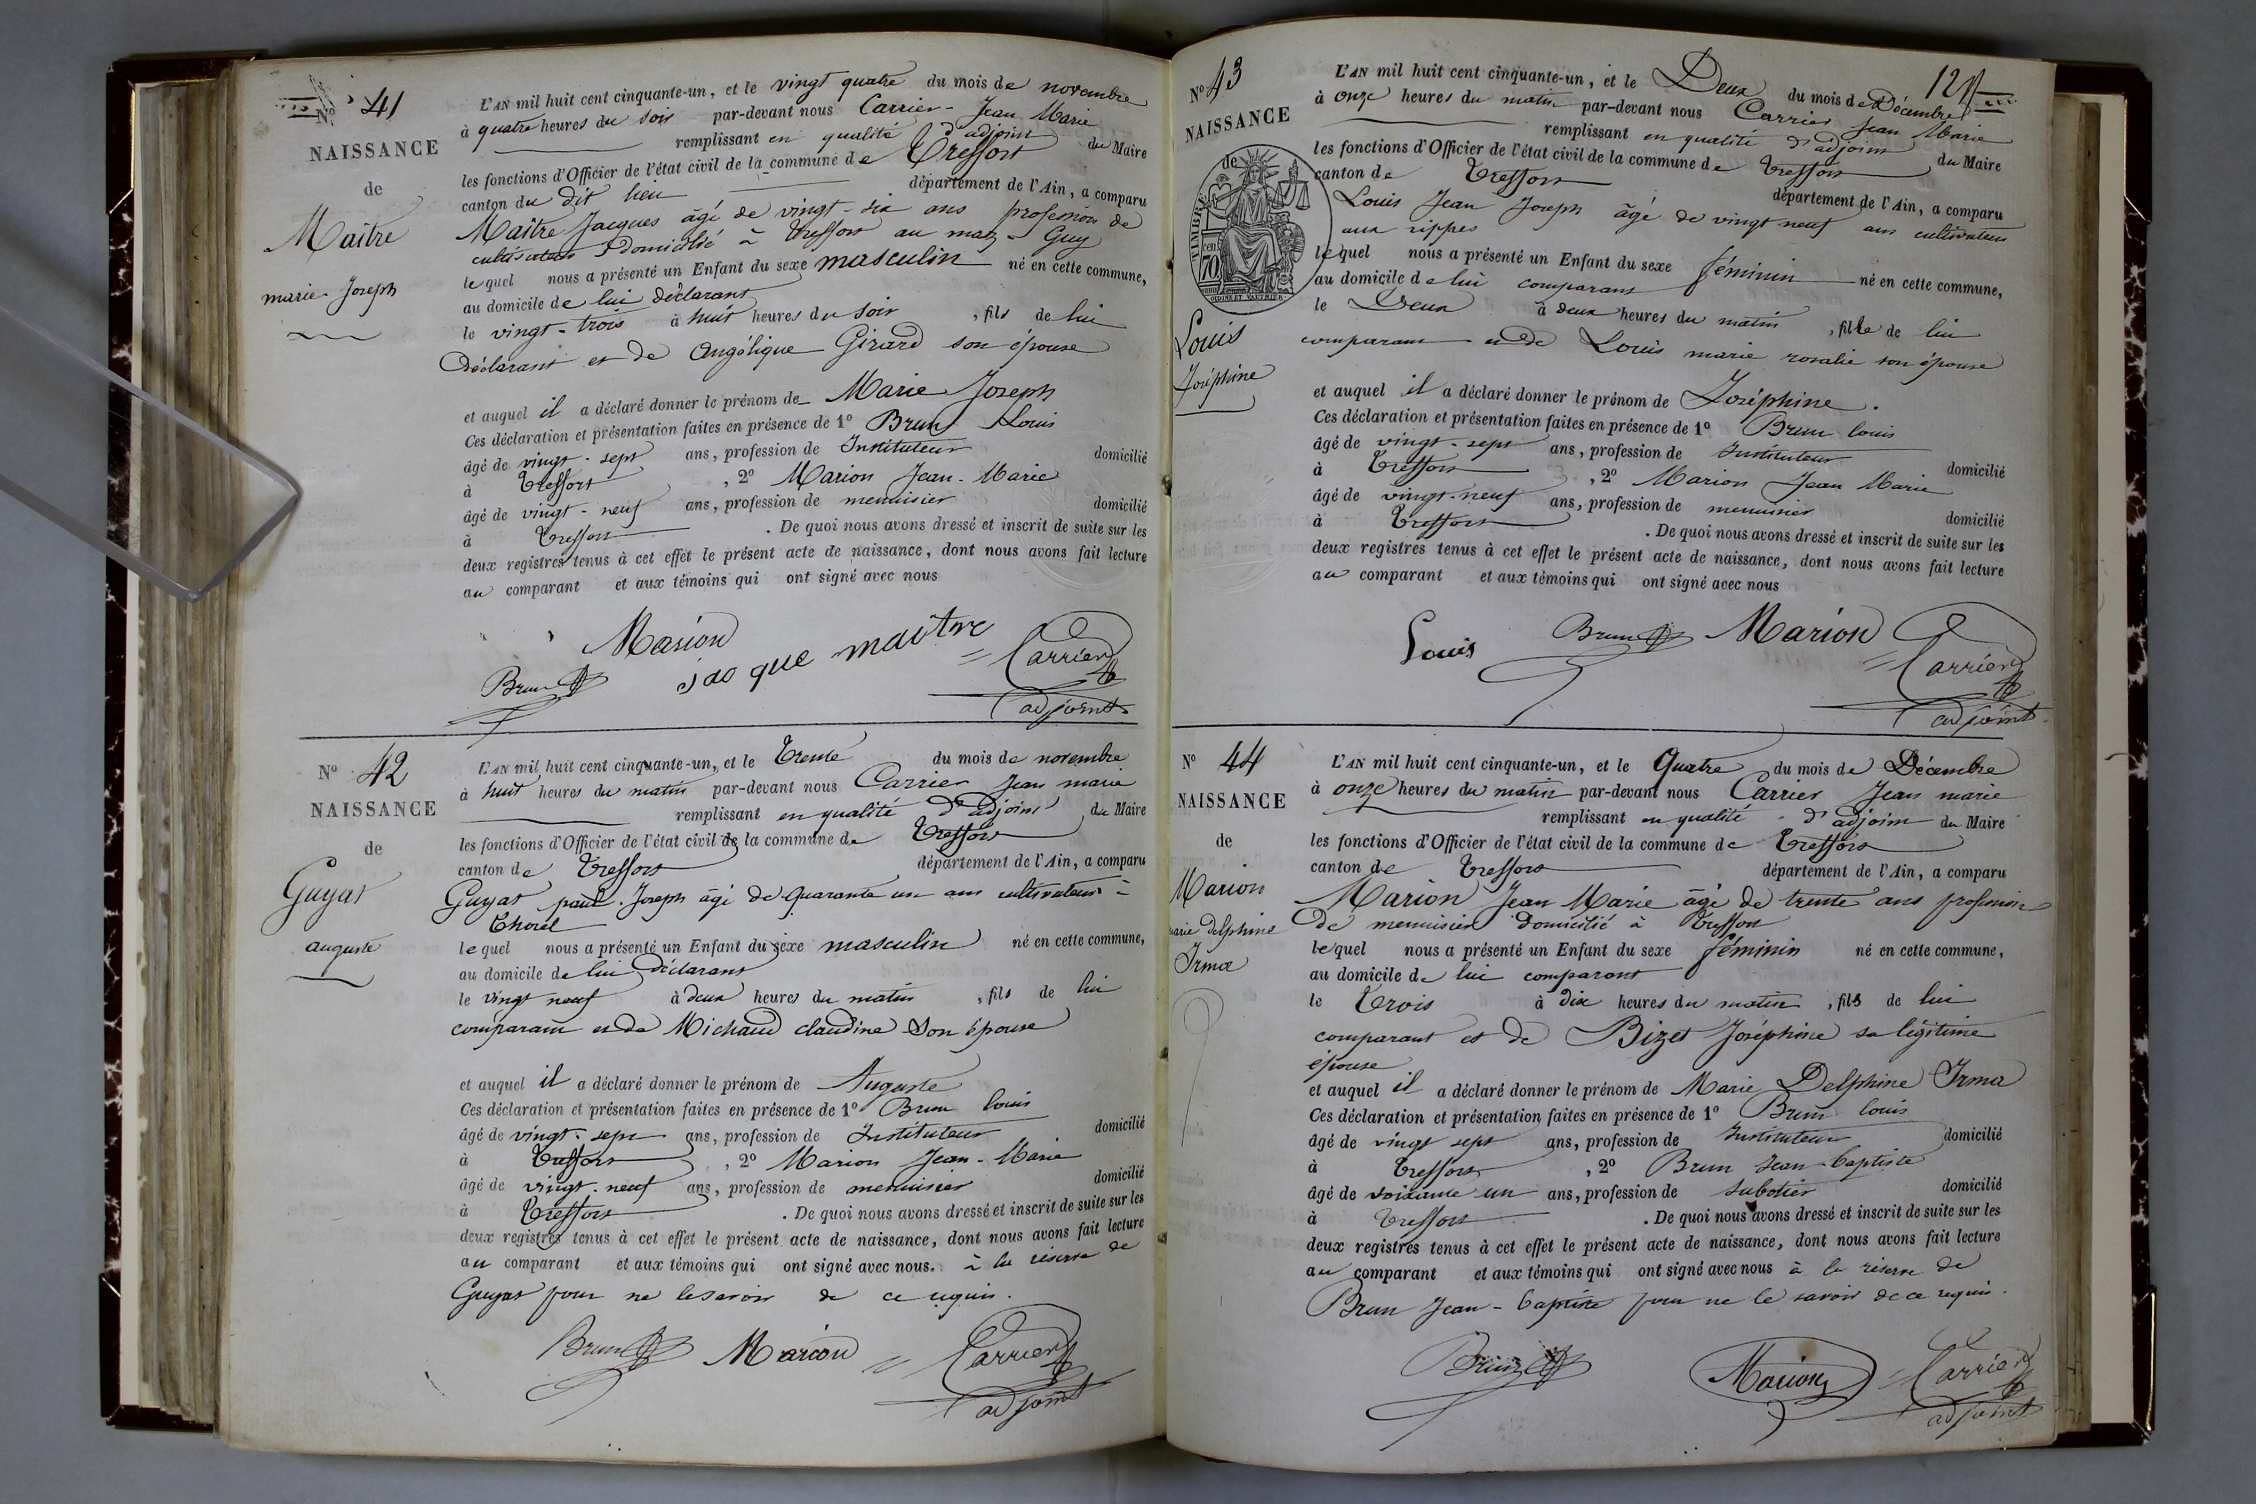 Nº 41
NAISSANCE
de
Maitre
marie Joseph
L'AN mil huit cent cinquante-un, et le vingt quatre du mois de novembre
à quatre heures du soir par-devant nous Carrier Jean Marie
remplissant en qualité d'adjoint du Maire
les fonctions d'Officier de l'état civil de la commune de Treffort
canton du dit lieu département de l'Ain, a comparu
Maitre Jacques âgé de vingt-six ans profession de
cultivateur domicilié à Treffort au maz-Guy
lequel nous a présenté un Enfant du sexe masculin né en cette commune,
au domicile de lui déclarant
le vingt-trois à huit heures du soir, fils de lui
déclarant et de Angélique Girard son épouse
et auquel il a déclaré donner le prénom de Marie Joseph
Ces déclaration et présentation faites en présence de 1º Brun Louis
âgé de vingt-sept ans, profession de Instituteur domicilié
à Treffort, 2º Marion Jean-Marie
âgé de vingt-neuf ans, profession de menuisier domicilié
à Treffort. De quoi nous avons dressé et inscrit de suite sur les
deux registres tenus à cet effet le présent acte de naissance, dont nous avons fait lecture
au comparant et aux témoins qui ont signé avec nous
Marion
Brun jaque maitre Carrier
adjoint
Nº 42
NAISSANCE
de
Guyat
auguste
L'AN mil huit cent cinquante-un, et le Trente du mois de novembre
à huit heures du matin par-devant nous Carrier Jean marie
remplissant en qualité d'adjoint du Maire
les fonctions d'Officier de l'état civil de la commune de Treffort
canton de Treffort département de l'Ain, a comparu
Guyat paul-Joseph âgé de quarante un ans cultivateur à
Thorel
lequel nous a présenté un Enfant du sexe masculin né en cette commune,
au domicile de lui déclarant
le vingt neuf à deux heures du matin, fils de lui
comparant et de Michaud claudine son épouse
et auquel il a déclaré donner le prénom de Auguste
Ces déclaration et présentation faites en présence de 1º Brun louis
âgé de vingt-sept ans, profession de Instituteur domicilié
à Treffort, 2º Marion Jean-Marie
âgé de vingt-neuf ans, profession de menuisier domicilié
à Treffort. De quoi nous avons dressé et inscrit de suite sur les
deux registres tenus à cet effet le présent acte de naissance, dont nous avons fait lecture
au comparant et aux témoins qui ont signé avec nous. à la réserve de
Guyat pour ne le savoir de ce requis.
Brun Marion Carrier
adjoint
Nº 43
NAISSANCE
de
TIMBRE
70
Louis
Joséphine
L'AN mil huit cent cinquante-un, et le Deux du mois de Décembre
à onze heures du matin par-devant nous Carrier Jean Marie
remplissant en qualité d'adjoint du Maire
les fonctions d'Officier de l'état civil de la commune de Treffort
canton de Treffort département de l'Ain, a comparu
Louis Jean Joseph âgé de vingt neuf ans cultivateur
aux rippes
lequel nous a présenté un Enfant du sexe féminin né en cette commune,
au domicile de lui comparant
le Deux à deux heures du matin, fille de lui
comparant et de Louis marie rosalie son épouse
et auquel il a déclaré donner le prénom de Joséphine.
Ces déclaration et présentation faites en présence de 1º Brun louis
âgé de vingt-sept ans, profession de Instituteur domicilié
à Treffort, 2º Marion Jean Marie
âgé de vingt-neuf ans, profession de menuisier domicilié
à Treffort. De quoi nous avons dressé et inscrit de suite sur les
deux registres tenus à cet effet le présent acte de naissance, dont nous avons fait lecture
au comparant et aux témoins qui ont signé avec nous
Louis Brun Marion Carrier
adjoint
Nº 44
NAISSANCE
de
Marion
marie delphine
Irma
L'AN mil huit cent cinquante-un, et le Quatre du mois de Décembre
à onze heures du matin par-devant nous Carrier Jean marie
remplissant en qualité d'adjoint du Maire
les fonctions d'Officier de l'état civil de la commune de Treffort
canton de Treffort département de l'Ain, a comparu
Marion Jean Marie âgé de trente ans profession
de menuisier domicilié à Treffort
lequel nous a présenté un Enfant du sexe féminin né en cette commune,
au domicile de lui comparant
le Trois à dix heures du matin, fils de lui
comparant et de Bizet Joséphine sa légitime
épouse
et auquel il a déclaré donner le prénom de Marie Delphine Irma
Ces déclaration et présentation faites en présence de 1º Brun louis
âgé de vingt sept ans, profession de Instituteur domicilié
à Treffort, 2º Brun Jean-baptiste
âgé de soixante un ans, profession de sabotier domicilié
à Treffort. De quoi nous avons dressé et inscrit de suite sur les
deux registres tenus à cet effet le présent acte de naissance, dont nous avons fait lecture
au comparant et aux témoins qui ont signé avec nous à la réserve de
Brun Jean-baptiste pour ne le savoir de ce requis.
Brun Marion Carrier
adjoint